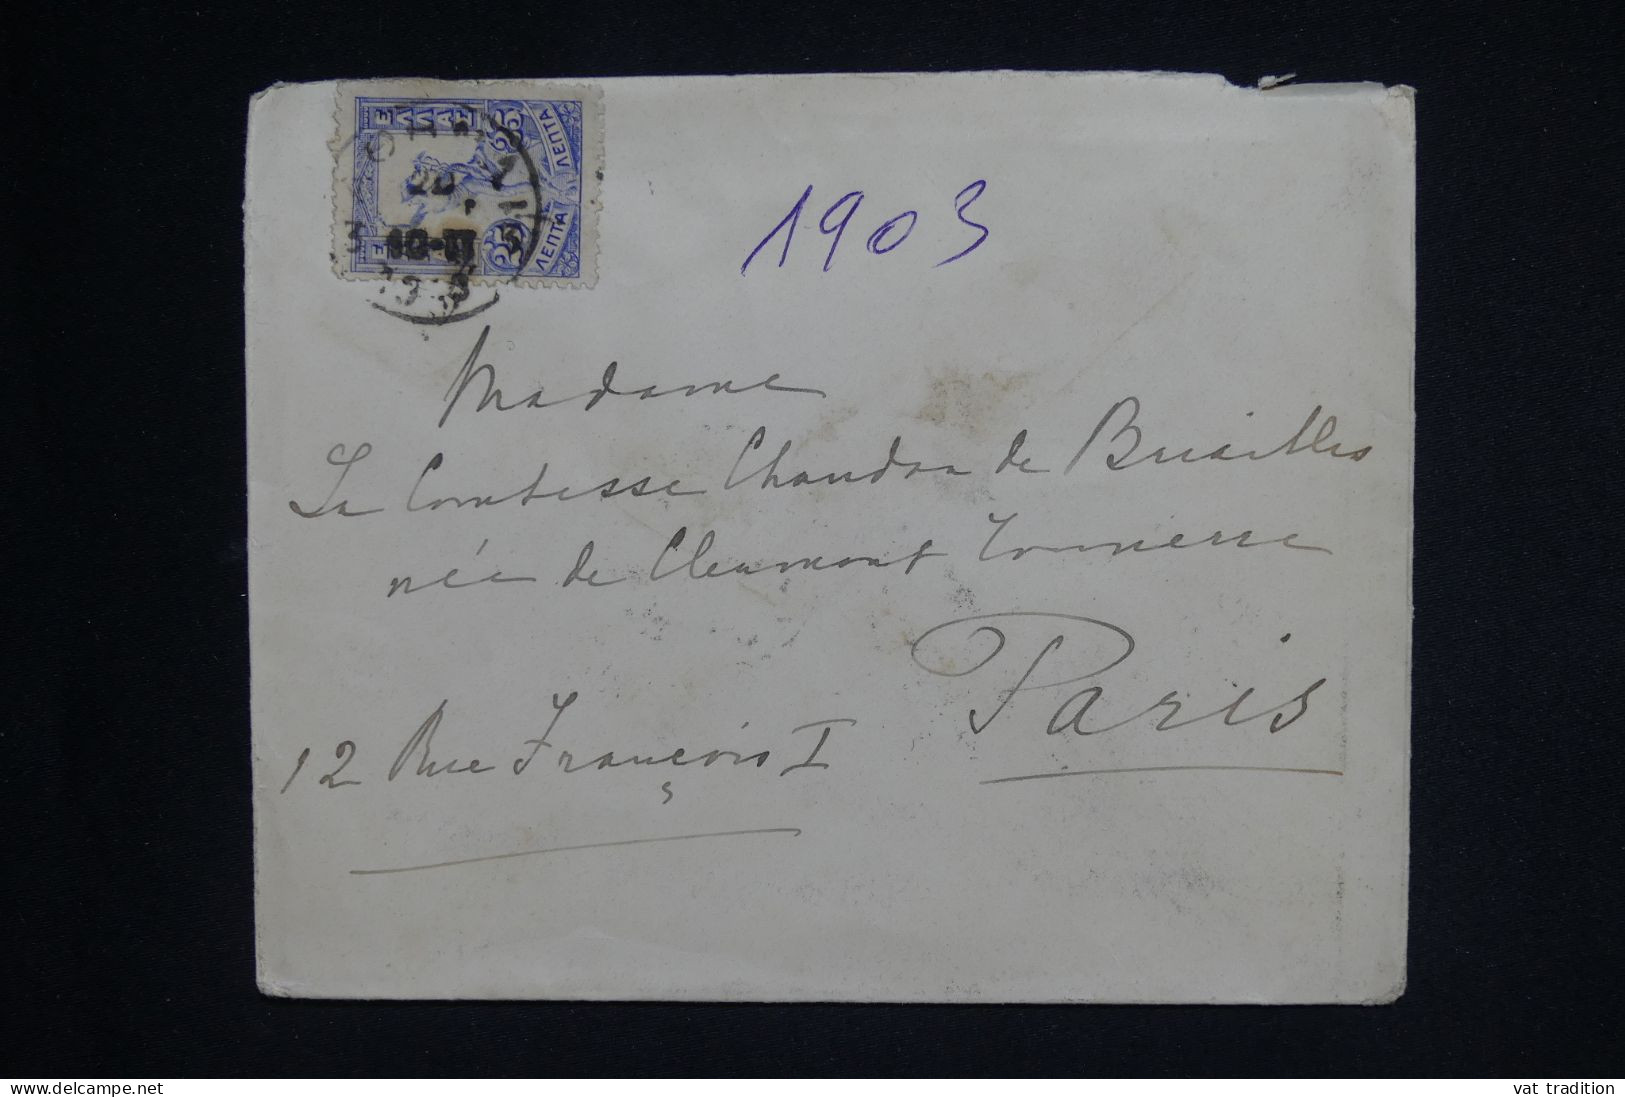 ΕΛΛΑΣ
25 25
ΛΕΠΤΑ ΛΕΠΤΑ
20
1903
Madame
La Comtesse Chandon de Briailles
née de Clermont Tonnerre
Paris
12 Rue François I
www.delcampe.net
vat tradition